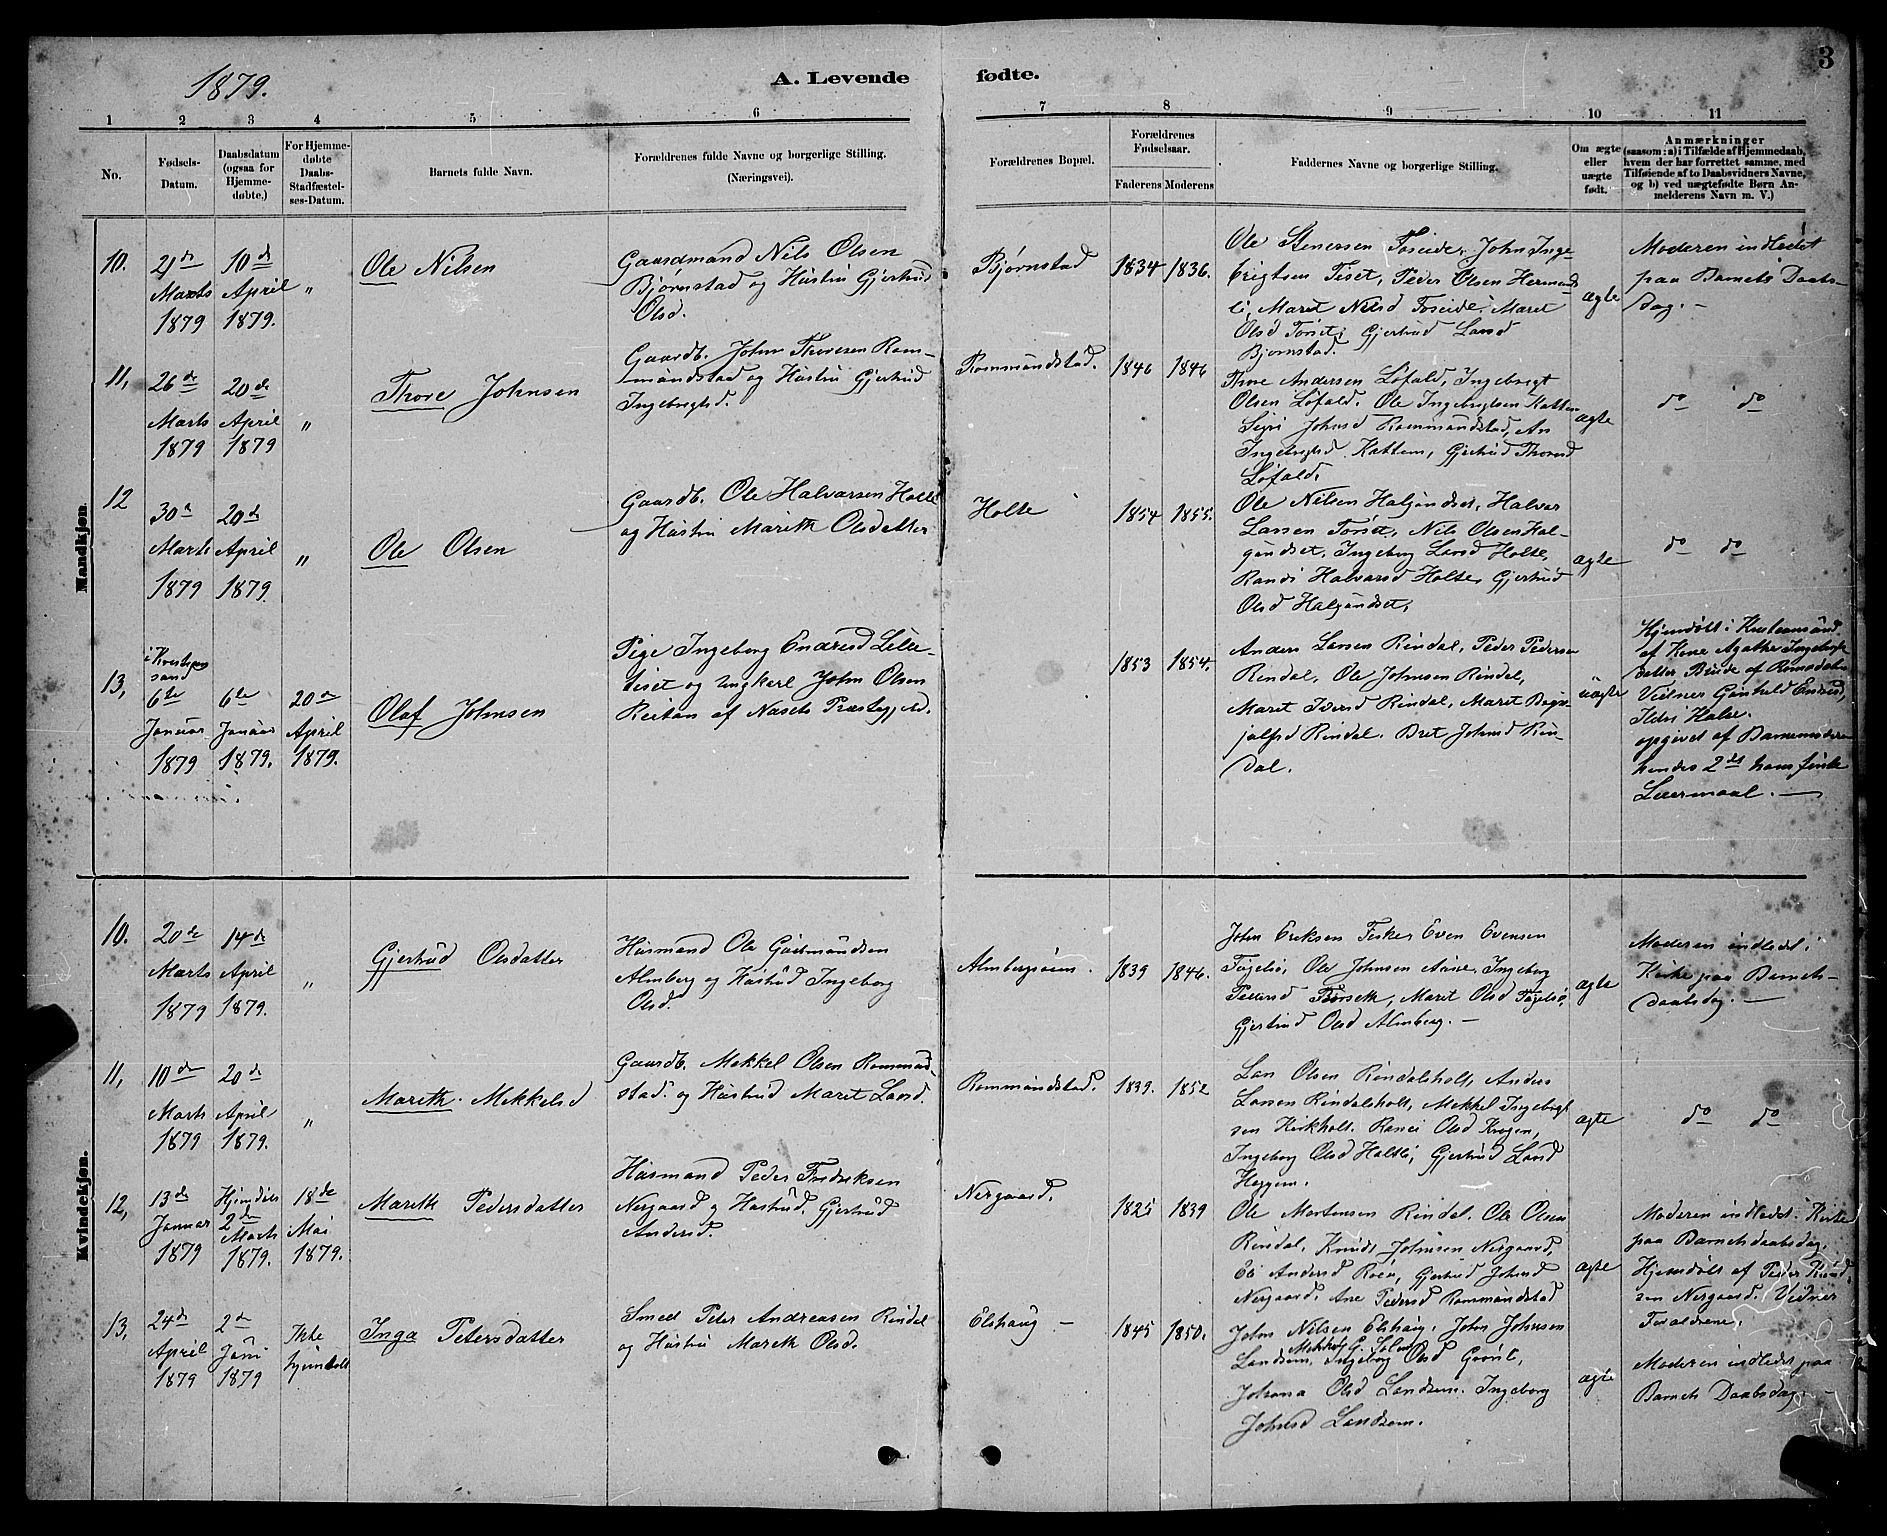 1879.
A. Levende
fødte.
3
1 2 3 4 5 6 7 8 9 10 11
No.
Fødsels-
Datum.
Daabsdatum
(ogsaa for
Hjemme-
døbte.)
For Hjemme-
døbte
Daabs-
Stadfæstel-
ses-Datum.
Barnets fulde Navn.
Forældrenes fulde Navne og borgerlige Stilling.
(Næringsvei).
Forældrenes Bopæl.
Forældrenes
Fødselsaar.
Faderens Moderens
Faddernes Navne og borgerlige Stilling.
Om ægte
eller
uægte
født.
Anmærkninger
(saasom: a) i Tilfælde af Hjemmedaab,
hvem der har forrettet samme, med
Tilføiende af to Daabsvidners Navne,
og b) ved uægtefødte Børn An-
melderens Navn m. V.)
Mandkjøn.
10.
21de
Marts
1879
10de
April
1879.
"
Ole Nilsen
Gaardmand Nils Olsen
Bjørnstad og Hustru Gjertrud
Olsd.
Bjørnstad
1834
1836.
Ole Stenersen Foseide, John Inge-
brigtsen Tiset, Peder Olsen Hermands
li, Maret Nilsd Foseide, Maret
Olsd Torset, Gjertrud Larsd
Bjørnstad.
ægte
Moderen indledet
paa Barnets Daabs-
dag. -
11,
26de
Marts
1879
20de
April
1879
"
Thore Johnsen
Gaardb. John Thoresen Rom-
mundstad og Hustru Gjertrud
Ingebrigtsd.
Rommundstad.
1846
1846
Thore Andersen Løfald, Ingebrigt
Olsen Løfald. Ole Ingebrigtsen Kattem
Sigri Johnsd Rommundstad, An
Ingebrigtsd Kattem, Gjertrud Thoresd
Løfald,
ægte
do do
12
30te
Marts
1879
20de
April
1879.
"
Ole Olsen
Gaardb. Ole Halvarsen Holte
og Hustru Marith Olsdatter
Holte
1854
1855.
Ole Nilsen Halgundset, Halvar
Larsen Torset, Nils Olsen Hal-
gundset, Ingeborg Larsd Holte,
Randi Halvarsd Holte, Gjertrud
Olsd Halgundset,
ægte
do do
13,
6te
Januar
1879
6te
Januar
1879.
20de
April
1879.
Olaf Johnsen
Pige Ingeborg Endresd Lille-
tiset og Ungkarl John Olsen
af Nasets Præstegjeld.
1853
1854.
Anders Larsen Rindal, Peder Pedersen
Rindal, Ole Johnsen Rindal,
Maret Iversd Rindal, Maret
Rindal. Bret Johnsd Rin-
dal.
uægte
Hjemdøbt i Kristiansund
af Kone Agathe
Vidner Gunhild Endresd,
Ildri Halse.
opgivet af Barnemoderen
hendes 2det hans første
Leiermaal. -
Kvindekjøn.
10.
20de
Marts
1879
14de
April
1879.
"
Gjertrud Olsdatter
Husmand Ole Gudmundsen
Almberg og Hustrud Ingeborg
Olsd.
1839
1846.
John Eriksen Fiske, Even Evensen
Fugelsø, Ole Johnsen Aune, Ingeborg
Pedersd Torseth, Maret Olsd Fugelsø,
Gjertrud Olsd Almberg. -
ægte
Moderen indledet i
Kirke paa Barnets-
daabsdag. -
11,
10de
Marts
1879
20de
April
1879.
"
Marith Mekkelsd
Gaardb. Mekkel Olsen Rommund-
stad og Hustrud Maret Larsd.
Rommundstad.
1839.
1852
Lars Olsen Rindalsholt, Anders
Larsen Rindalsholt, Mekkel Ingebrigt
sen Kirkholt. Ranei Olsd Krogen,
Ingeborg Olsd Haltli, Gjertrud Larsd
Heggem.
ægte
do do
12,
13de
Januar
1879
Hjemdøbt
2den
Marts
1879.
18de
Mai
1879.
Marith Pedersdatter
Husmand Peder Fredriksen
Nergaard og Hustrud Gjertrud
Andersd.
Nergaard.
1825
1839
Ole Mortensen Rindal. Ole Olsen
Rindal, Knudt Johnsen Nergaard,
Eli Andersd Roen, Gjertrud Johnsd
Nergaard. Ane Pedersd Rommundstad
ægte
Moderen indledet i Kirke
paa Barnets daabsdag.
Hjemdøbt af Peder Knud-
sen Nergaard. Vidner
Forældrene.
13,
24de
April
1879
2de
Juni
1879
Ikke
hjemdøbt
Inga Petersdatter
Smed Peter Andreasen Rindal
og Hustru Marith Olsd.
Elshaug -
1845
1850.
John Nilsen Elshaug. John Johnsen
Landsem, Ingeborg Olsd Grønli,
Johana Olsd Landsem. Ingeborg
Johnsd Landsem.
ægte
Moderen indledet paa
Barnets Daabsdag. -